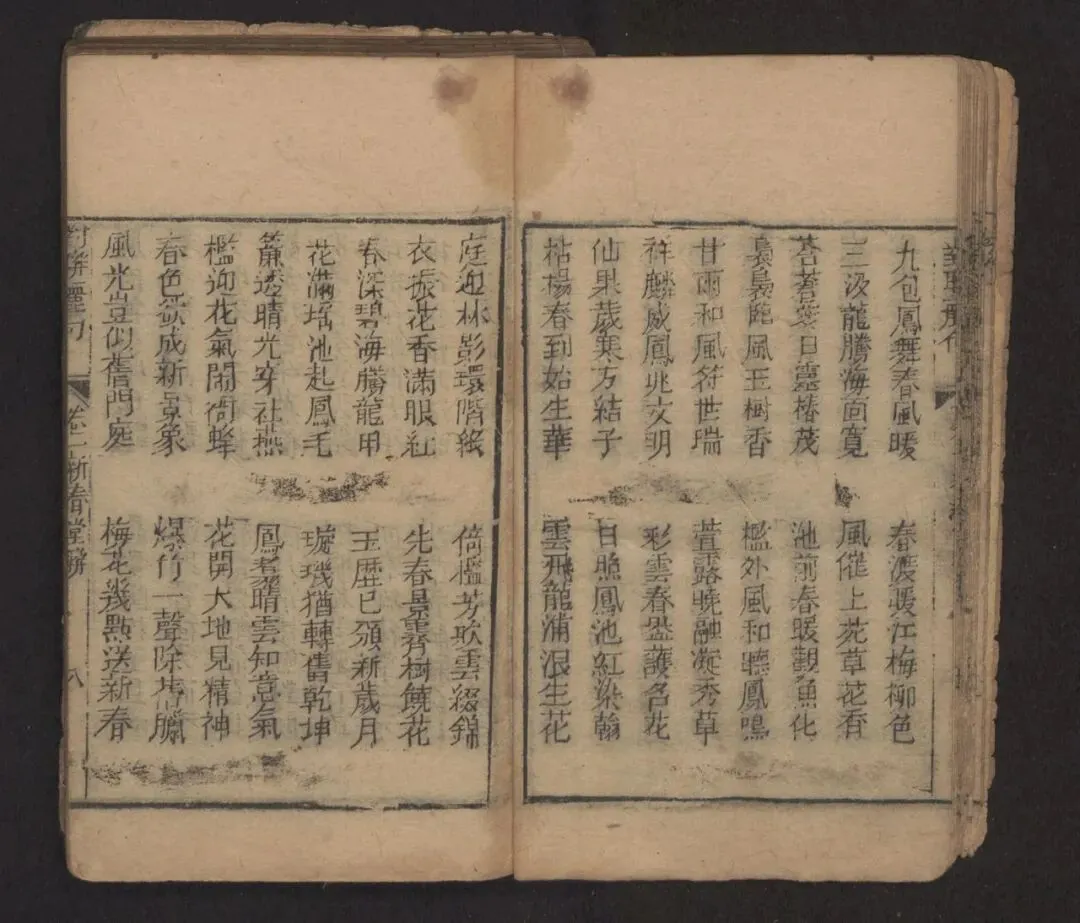 九包鳳舞春風暖
三汲龍騰海面寬
蒼日靈椿茂
裊裊風玉樹香
甘雨和風符世瑞
祥麟威鳳兆文明
仙果歲寒方結子
枯楊春到始生華
春渡暖江梅柳色
風催上苑草花香
池前春暖觀魚化
檻外風和聽鳳鳴
萱露曉融凝秀草
彩雲春盎護名花
日照鳳池紅染翰
雲飛龍浦浪生花
庭迎林彭環階綠
衣振花香滿眼紅
春深碧海騰龍甲
花滿瑤池起鳳毛
簾透晴光穿社燕
檻迎花氣鬧衙蜂
春色欲成新景象
風光豈似舊門庭
倚檻芳欹雲綴錦
先春景樹饒花
玉歷已頒新歲月
璇璣猶轉舊乾坤
鳳翥晴雲知意氣
花開大地見精神
爆竹一聲除舊臘
梅花幾點送新春
卷二 新春堂聯 八